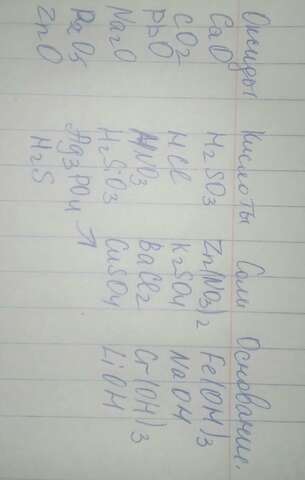 Оксиды Кислоты Соли Основание.
CaO H2SO3 Zn(NO3)2 Fe(OH)3
CO2 HCl K2SO4 NaOH
PbO HNO3 BaCl2 Cr(OH)3
Na2O H2SiO3 CuSO4 LiOH
P2O5 Ag3PO4 →
ZnO H2S